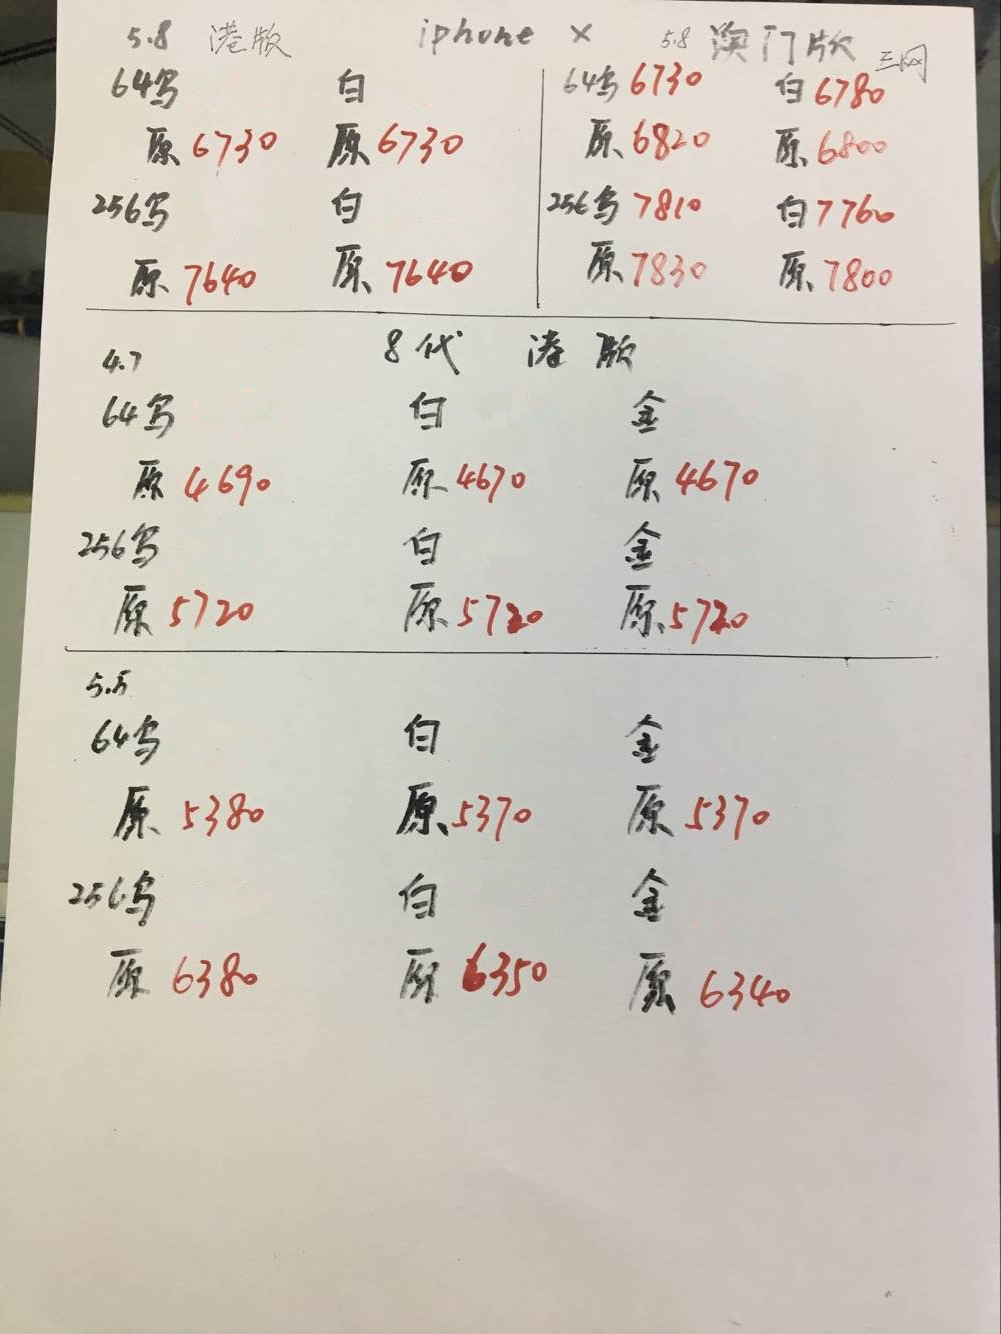 5.8 港版 iphone X 5.8 澳门版 三网
64乌 白 64乌 6730 白 6780
原 6730 原 6730 原 6820 原 6800
256乌 白 256乌 7810 白 7760
原 7640 原 7640 原 7830 原 7800
4.7 8代 港版
64乌 白 金
原 4690 原 4670 原 4670
256乌 白 金
原 5720 原 5720 原 5720
5.5
64乌 白 金
原 5380 原 5370 原 5370
256乌 白 金
原 6380 原 6350 原 6340